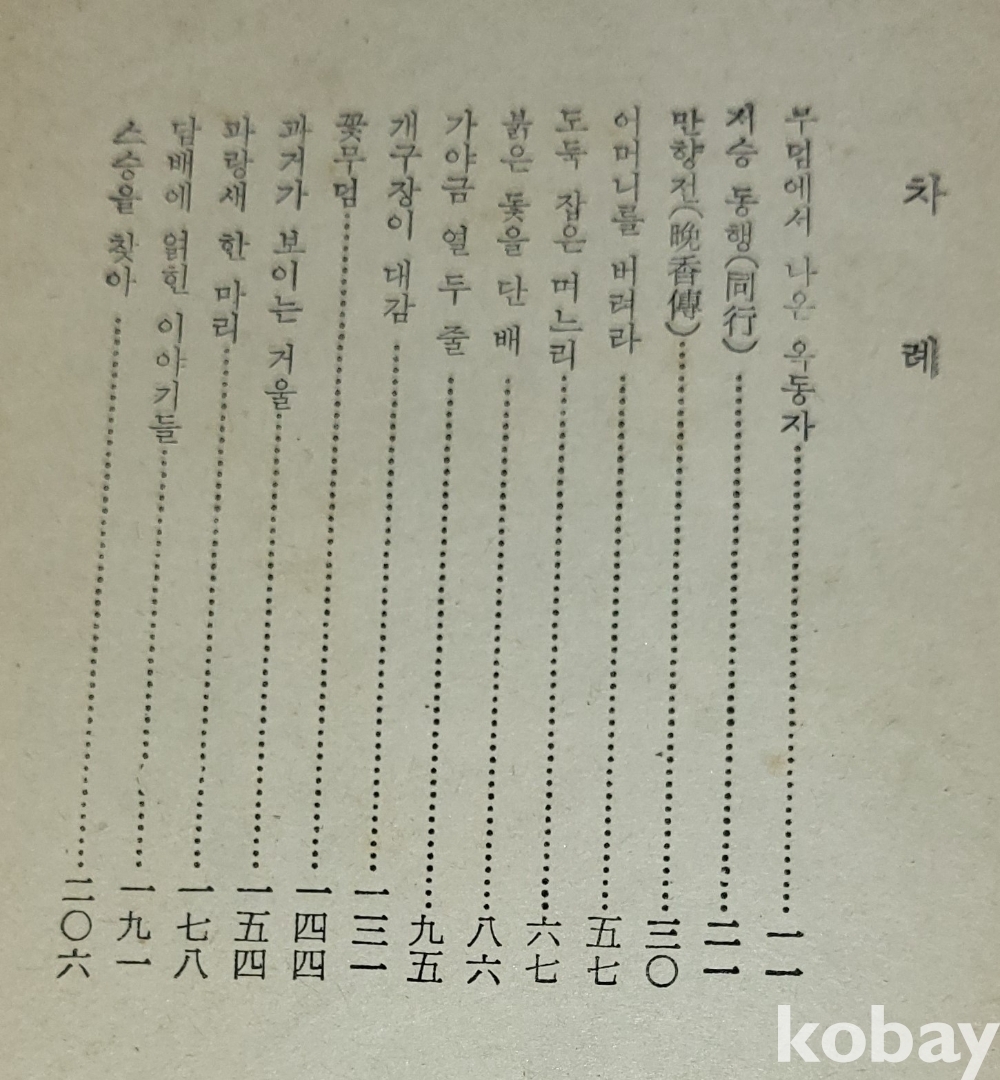 차례
무덤에서 나온 옥동자……一一
저승 동행(同行)……二一
만향전(晩香傳)……三〇
어머니를 버려라……五七
도둑 잡은 며느리……六七
붉은 돛을 단 배……八六
가야금 열 두 줄……九五
개구장이 대감……一三一
꽃무덤……一四四
과거가 보이는 거울……一五四
파랑새 한 마리……一七八
담배에 얽힌 이야기들……一九一
스승을 찾아……二〇六
kobay